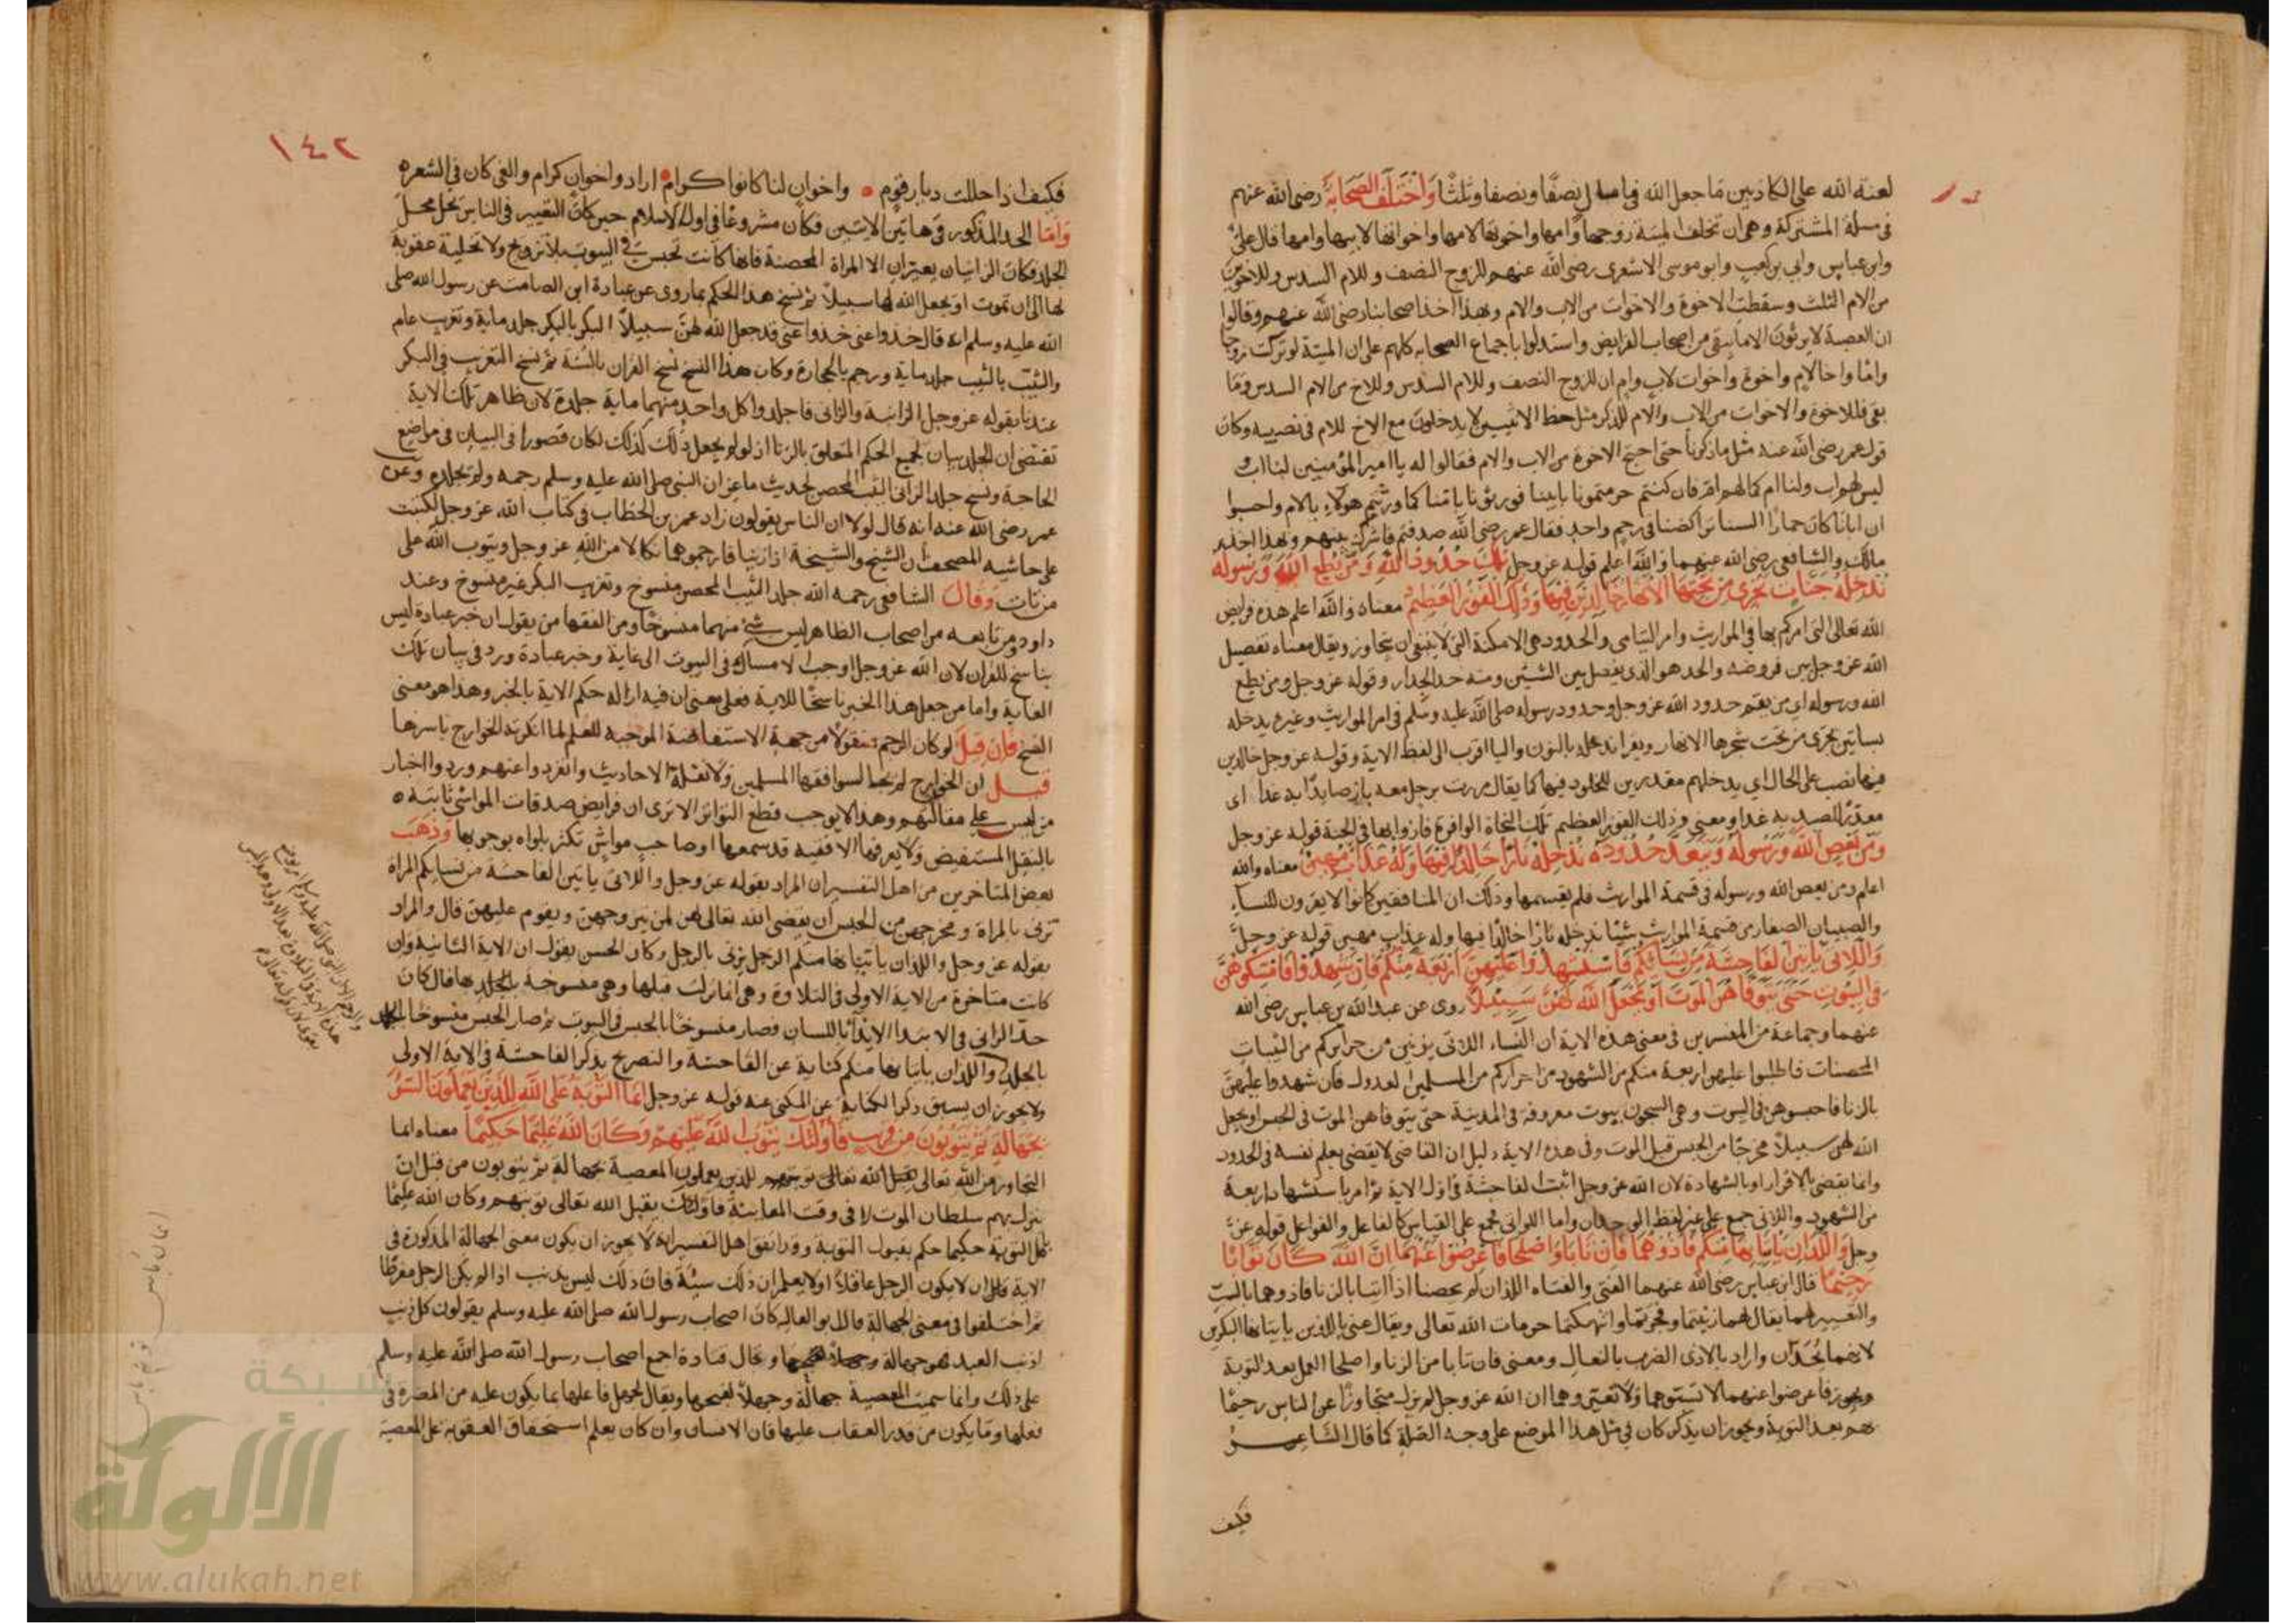 لعنة الله على الكاذبين ما جعل الله في مال نصفا ونصفا وثلثا واختلف الصحابة رضى الله عنهم
فى مسلة المشتركة وهى ان تخلف الميتة زوجها وامها واخوتها لامها واخواتها لابيها وامها قال على
وابن عباس وابي بن كعب وابو موسى الاشعرى رضى الله عنهم للزوج النصف وللام السدس وللاخوين
من الام الثلث وسقطت الاخوة والاخوات من الاب والام وبهذا اخذ اصحابنا رضى الله عنهم وقالوا
ان العصبة لا يرثون الا ما يبقى من اصحاب الفرايض واستدلوا باجماع الصحابه كلهم على ان الميتة لو تركت زوجا
واما واخا لام واخوة واخوات لاب وام ان للزوج النصف وللام السدس وللاخ من الام السدس وما
بقى فللاخوة والاخوات من الاب والام للذكر مثل حظ الانثيين لا يدخلون مع الاخ للام فى نصيبه وكان
قول عمر رضى الله عنه مثل ما ذكرنا حتى احتج الاخوة من الاب والام فقالوا له يا امير المؤمنين لنا اب
ليس لهم اب ولنا ام كما لهم ام فان كنتم حرمتمونا بابينا فورثونا بامنا كما ورثتم هولاء بالام واحسبوا
ان ابانا كان حمارا السنا تراكضنا فى رحم واحد فقال عمر رضى الله صدقتم فاشرك بينهم وبهذا اخذ
مالك والشافعى رضى الله عنهما والله اعلم قوله عز وجل تلك حدود الله ومن يطع الله ورسوله
ندخله جنات تجرى من تحتها الانهار خالدين فيها وذلك الفوز العظيم معناه والله اعلم هذه فرايض
الله تعالى التى امركم بها فى المواريث وامر اليتامى والحدود هى الامكنة التى لا ينبغى ان يتجاوز ويقال معناه تفصيل
الله عز وجل بين فروضه والحد هو الذى يفصل بين الشيئين ومنه حد الجدار وقوله عز وجل ومن يطع
الله ورسوله اى من يقيم حدود الله عز وجل وحدود رسوله صلى الله عليه وسلم فى امر المواريث وغيره يدخله
بساتين تجرى من تحت شجرها الانهار ويقرا ندخله بالنون واليا اقرب الى لفظ الاية وقوله عز وجل خالدين
فيها نصب على الحال اى يدخلهم مقدرين للخلود فيها كما يقال مررت برجل معه باز صايدا به غدا اى
مقدرا للصيد به غدا ومعنى وذلك الفوز العظيم تلك النجاة الوافرة فازوا بها فى الجنة قوله عز وجل
ومن يعص الله ورسوله ويتعد حدوده ندخله نارا خالدا فيها وله عذاب مهين معناه والله
اعلم ومن يعص الله ورسوله فى قسمة المواريث فلم يقسمها وذلك ان المنافقين كانوا لا يقرون للنساء
والصبيان الصغار من قسمة المواريث شيئا ندخله نارا خالدا فيها وله عذاب مهين قوله عز وجل
واللاتى ياتين الفاحشة من نسائكم فاستشهدوا عليهن اربعة منكم فان شهدوا فامسكوهن
فى البيوت حتى يتوفاهن الموت او يجعل الله لهن سبيلا روى عن عبد الله بن عباس رضى الله
عنهما وجماعة من المفسرين فى معنى هذه الاية ان النساء اللاتى يزنين من حرايركم من الثيبات
المحصنات فاطلبوا عليهن اربعة منكم من الشهود من احراركم من المسلمين العدول فان شهدوا عليهن
بالزنا فاحبسوهن فى البيوت وهى السجون بيوت معروفة فى المدينة حتى يتوفاهن الموت فى الحبس او يجعل
الله لهن سبيلا مخرجا من الحبس قبل الموت وفى هذه الاية دليل ان القاضى لا يقضى بعلم نفسه فى الحدود
وانما يقضى بالاقرار او بالشهادة لان الله عز وجل اثبت الفاحشة فى اول الاية ثم امر باستشهاد اربعة
من الشهود واللاتى جمع على غير لفظ الوحدان واما اللواتى فجمع على القياس كالفاعل والفواعل قوله عز
وجل واللذان ياتيانها منكم فاذوهما فان تابا واصلحا فاعرضوا عنهما ان الله كان توابا
رحيما قال ابن عباس رضى الله عنهما الفتى والفتاه اللذان لم يحصنا اذا اتيا بالزنا فاذوهما بالسب
والتعيير لهما يقال لهما زنيتما وفجرتما وانتهكتما حرمات الله تعالى ويقال عنى باللذين ياتيانها البكرين
لانهما يحدان واراد بالاذى الضرب بالنعال ومعنى فان تابا من الزنا واصلحا العمل بعد التوبة
ويجوز فاعرضوا عنهما لا تسبوهما ولا تعيروهما ان الله عز وجل لم يزل متجاوزا عن الناس رحيما
بهم بعد التوبة ويجوز ان يذكر كان فى مثل هذا الموضع على وجه الصلة كما قال الشاعر
فكيف
١٤٢
فكيف اذا حللت ديار قوم واخوان لنا كانوا كرام اراد واخوان كرام والغى كان فى الشعر
واما الحد المذكور فى هاتين الايتين فكان مشروعا فى اول الاسلام حين كان التعيير فى الناس يحل محل
الجلد فكان الزانيان يعيران الا المراة المحصنة فانها كانت تحبس فى البيوت بلا تزويج ولا تخلية عقوبة
لها الى ان تموت او يجعل الله لها سبيلا ثم نسخ هذا الحكم بما روى عن عبادة ابن الصامت عن رسول الله صلى
الله عليه وسلم انه قال خذوا عنى خذوا عنى قد جعل الله لهن سبيلا البكر بالبكر جلد ماية وتغريب عام
والثيب بالثيب جلد ماية ورجم بالحجارة وكان هذا النسخ نسخ القران بالسنة ثم نسخ التغريب فى البكر
عندنا بقوله عز وجل الزانية والزانى فاجلدوا كل واحد منهما ماية جلدة لان ظاهر تلك الاية
تقتضى ان الجلد بيان لجميع الحكم المتعلق بالزنا اذ لو لم يجعل ذلك كذلك لكان قصورا فى البيان فى مواضع
الحاجة ونسخ جلد الزانى الثيب المحصن بحديث ماعز ان النبى صلى الله عليه وسلم رجمه ولم يجلده وعن
عمر رضى الله عنه انه قال لولا ان الناس يقولون زاد عمر بن الخطاب فى كتاب الله عز وجل لكتبت
على حاشيه المصحف ان الشيخ والشيخة اذا زنيا فارجموهما نكالا من الله عز وجل ويتوب الله على
من تاب وقال الشافعى رحمه الله جلد الثيب المحصن منسوخ وتغريب البكر غير منسوخ وعند
داود ومن تابعه من اصحاب الظاهر ليس شئ منهما منسوخا ومن الفقها من يقول ان خبر عبادة ليس
بناسخ للقران لان الله عز وجل اوجب الامساك فى البيوت الى غاية وخبر عبادة ورد فى بيان تلك
الغاية واما من جعل هذا الخبر ناسخا للاية فعلى معنى ان فيه ازالة حكم الاية بالخبر وهذا هو معنى
النسخ فان قيل لو كان الرجم منقولا من جهة الاستفاضة الموجبه للعلم لما انكرته الخوارج باسرها
قيل ان الخوارج لم يجالسوا فقها المسلمين ولا نقلة الاحاديث وانفردوا عنهم وردوا اخبار
من ليس على مقالتهم وهذا لا يوجب قطع التواتر الا ترى ان فرايض صدقات المواشى ثابته
بالنقل المستفيض ولا يعرفها الا فقيه قد سمعها او صاحب مواش تكثر بلواه بوجوبها وذهب
بعض المتاخرين من اهل التفسير ان المراد بقوله عز وجل واللاتى ياتين الفاحشة من نسايكم المراة
تزنى بالمراة ومخرجهن من الحبس ان يقضى الله تعالى لهن لمن يتزوجهن ويقوم عليهن قال والمراد
بقوله عز وجل واللذان ياتيانها منكم الرجل يزنى بالرجل وكان الحسن يقول ان الاية الثانية وان
كانت متاخرة من الاية الاولى فى التلاوة وهى انما نزلت قبلها وهى منسوخة بالجلد بها قال كان
حد الزانى فى الابتدا الايذا باللسان فصار منسوخا بالحبس فى البيوت ثم صار الحبس منسوخا
بالجلد واللذان ياتيانها منكم كناية عن الفاحشة والتصريح بذكر الفاحشة فى الاية الاولى
ولا يجوز ان يسبق ذكر الكناية عن المكنى عنه قوله عز وجل انما التوبة على الله للذين يعملون السوء
بجهالة ثم يتوبون من قريب فاولئك يتوب الله عليهم وكان الله عليما حكيما معناه انما
التجاوز من الله تعالى يقبل الله تعالى توبتهم للذين يعملون المعصية بجهالة ثم يتوبون من قبل ان
ينزل بهم سلطان الموت لا فى وقت المعاينة فاولئك يقبل الله تعالى توبتهم وكان الله عليما
باهل التوبة حكيما حكم بقبول التوبة وقد اتفق اهل التفسير انه لا يجوز ان يكون معنى الجهالة المذكورة فى
الاية ان لا يكون الرجل عاقلا او لا يعلم ان ذلك سيئة فان ذلك ليس بذنب اذا لم يكن الرجل مفرطا
ثم اختلفوا فى معنى الجهالة قال ابو العاليه كان اصحاب رسول الله صلى الله عليه وسلم يقولون كل ذنب
اذنب العبد فهو جهالة وقال قتادة اجمع اصحاب رسول الله صلى الله عليه وسلم
على ذلك وانما سميت المعصية جهالة وجهلا لقبحها ويقال لجهل فاعلها بما يكون عليه من المضرة فى
فعلها وما يكون من قدر العقاب عليها فان الانسان وان كان يعلم استحقاق العقوبة على المعصية
شبكة
الألوكة
www.alukah.net